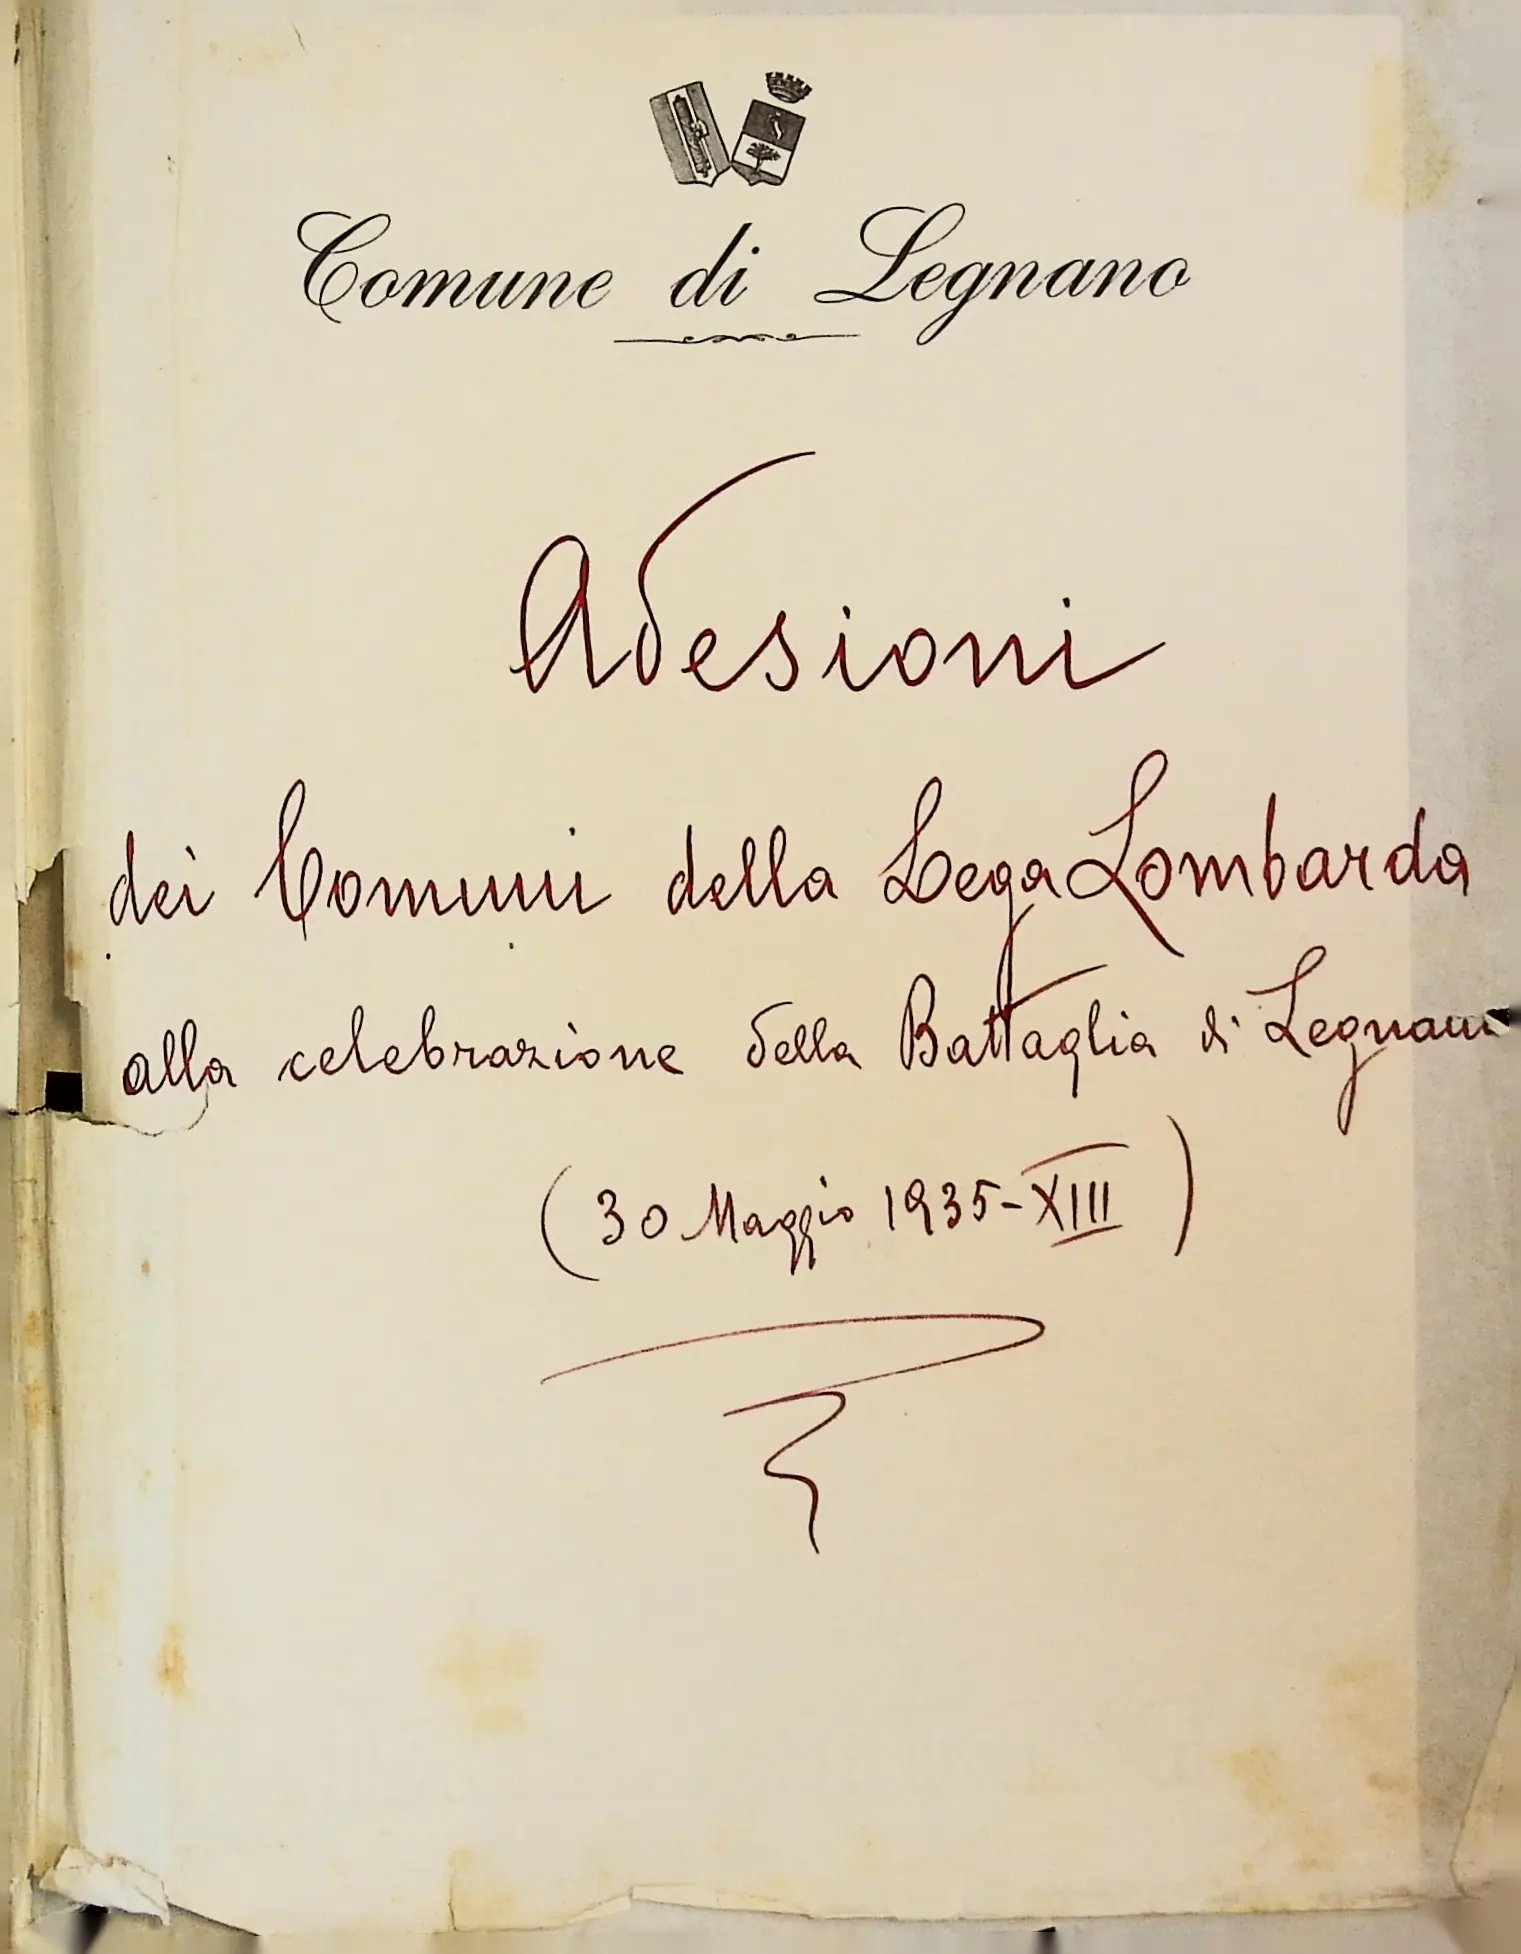 Comune di Legnano
Adesioni
dei Comuni della Lega Lombarda
alla celebrazione della Battaglia di Legnano
(30 Maggio 1935-XIII)